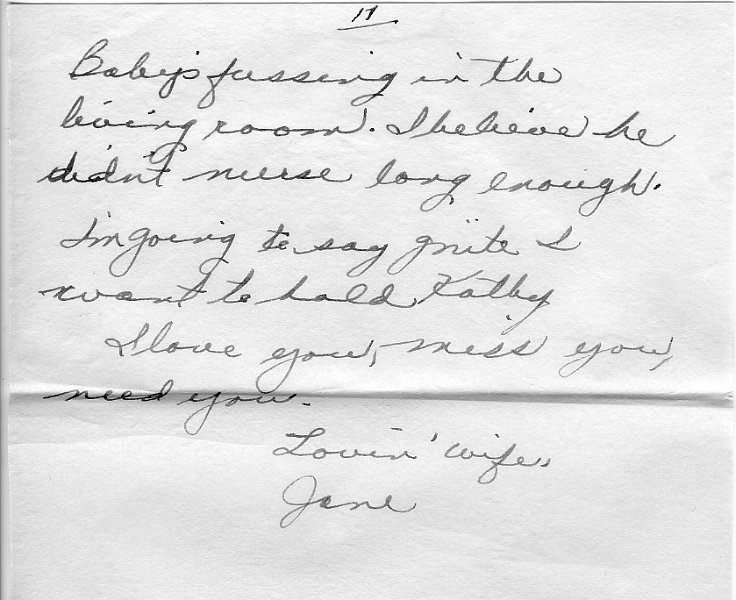 11
Baby's fussing in the
living room. I believe he
didn't nurse long enough.
I'm going to say gnite I
want to hold Kathy
I love you, miss you,
need you.
Lovin' wife,
Jane